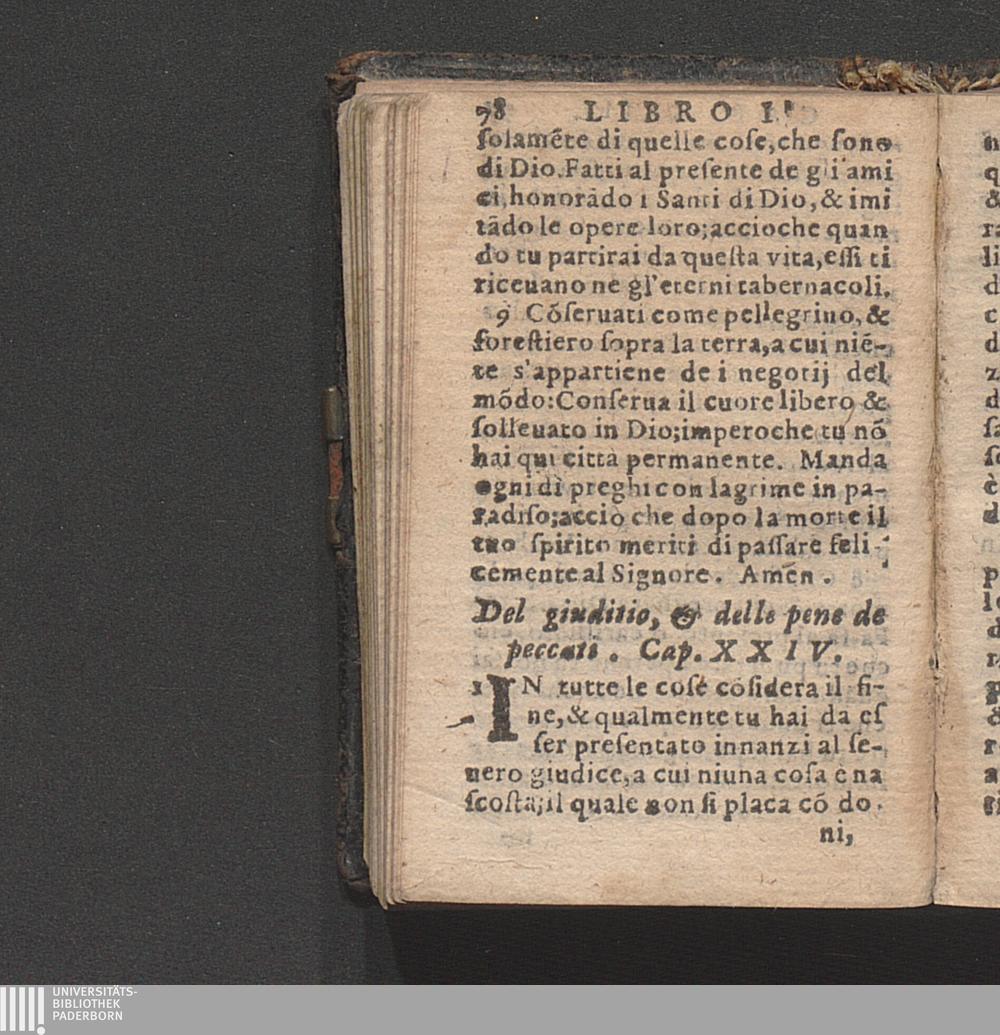 98 LIBRO I.
ſolamẽte di quelle coſe,che ſono
di Dio.Fatti al preſente de gli ami
ci,honorãdo i Santi di Dio,& imi
tãdo le opere loro;accioche quan
do tu partirai da queſta vita,eſſi ti
riceuano ne gl'eterni tabernacoli.
9 Cõſeruati come pellegrino,&
foreſtiero ſopra la terra,a cui niẽ-
te s'appartiene de i negotij del
mõdo:Conſerua il cuore libero &
ſolleuato in Dio;imperoche tu nõ
hai qui città permanente. Manda
ogni dì preghi con lagrime in pa-
radiſo;acciò che dopo la morte il
tuo ſpirito meriti di paſſare feli-
cemente al Signore. Amẽn.
Del giuditio, & delle pene de
peccati. Cap. XXIV.
1 IN tutte le coſe cõſidera il fi-
ne,& qualmente tu hai da eſ
ſer preſentato innanzi al ſe-
uero giudice,a cui niuna coſa è na
ſcoſta;il quale non ſi placa cõ do-
ni,
UNIVERSITÄTS-
BIBLIOTHEK
PADERBORN